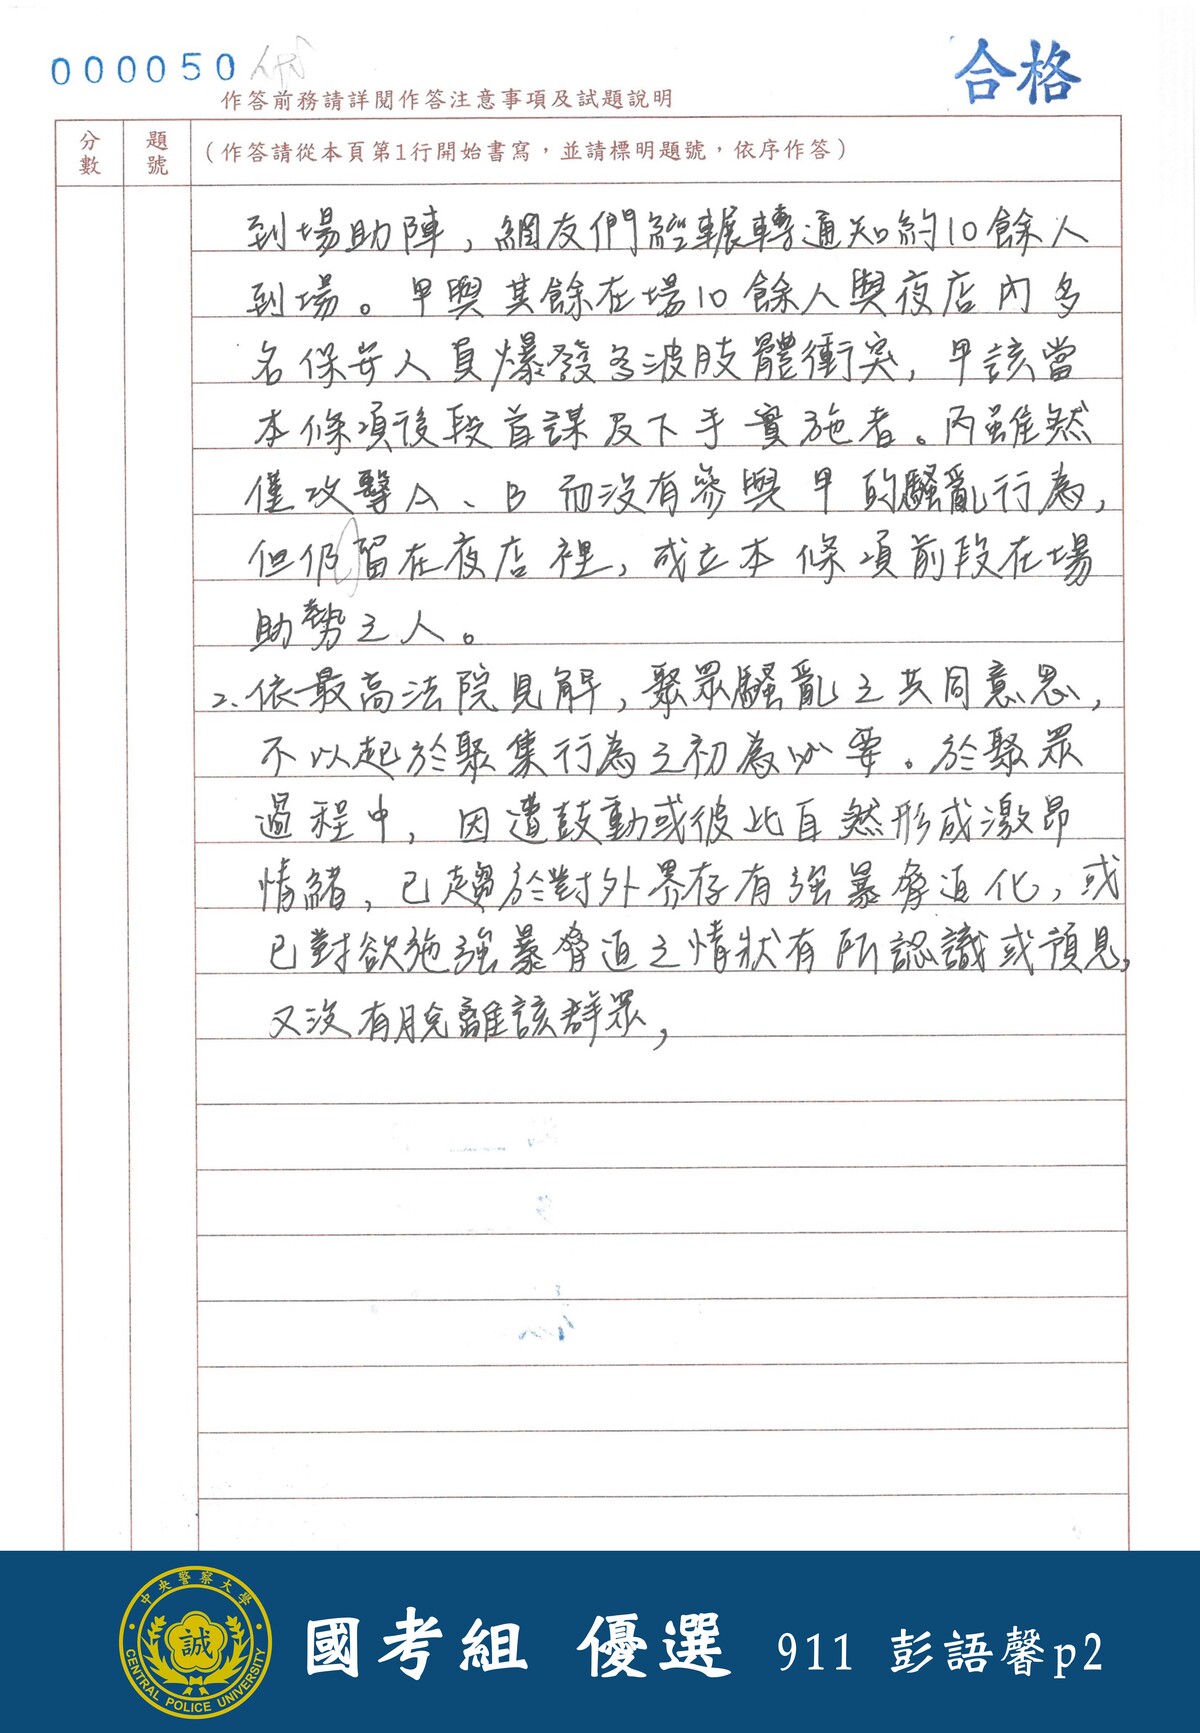 000050
合格
作答前務請詳閱作答注意事項及試題說明
分數
題號
(作答請從本頁第1行開始書寫，並請標明題號，依序作答)
到場助陣，網友們經輾轉通知約10餘人
到場。甲與其餘在場10餘人與夜店內多
名保安人員爆發多波肢體衝突，甲該當
本條項後段首謀及下手實施者。丙雖然
僅攻擊A、B而沒有參與甲的騷亂行為，
但仍留在夜店裡，成立本條項前段在場
助勢之人。
2.依最高法院見解，聚眾騷亂之共同意思，
不以起於聚集行為之初為必要。於聚眾
過程中，因遭鼓動或彼此自然形成激昂
情緒，已趨於對外界存有強暴脅迫化，或
已對欲施強暴脅迫之情狀有所認識或預見，
又沒有脫離該群眾，
中央警察大學
誠
CENTRAL POLICE UNIVERSITY
國考組 優選 911 彭語馨p2